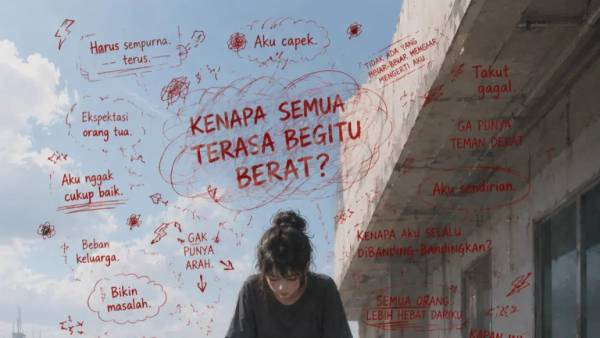 Harus sempurna.
terus.
Aku capek.
TIDAK ADA YANG
BENAR-BENAR
MENGERTI AKU
Takut
gagal.
Ekspektasi
orang tua.
KENAPA SEMUA
TERASA BEGITU
BERAT?
GA PUNYA
TEMAN DEKAT
Aku nggak
cukup baik.
Aku sendirian.
Beban
keluarga.
GAK
PUNYA
ARAH.
KENAPA AKU SELALU
DIBANDING-BANDINGKAN?
Bikin
masalah.
SEMUA ORANG
LEBIH HEBAT DARIKU
KAPAN INI